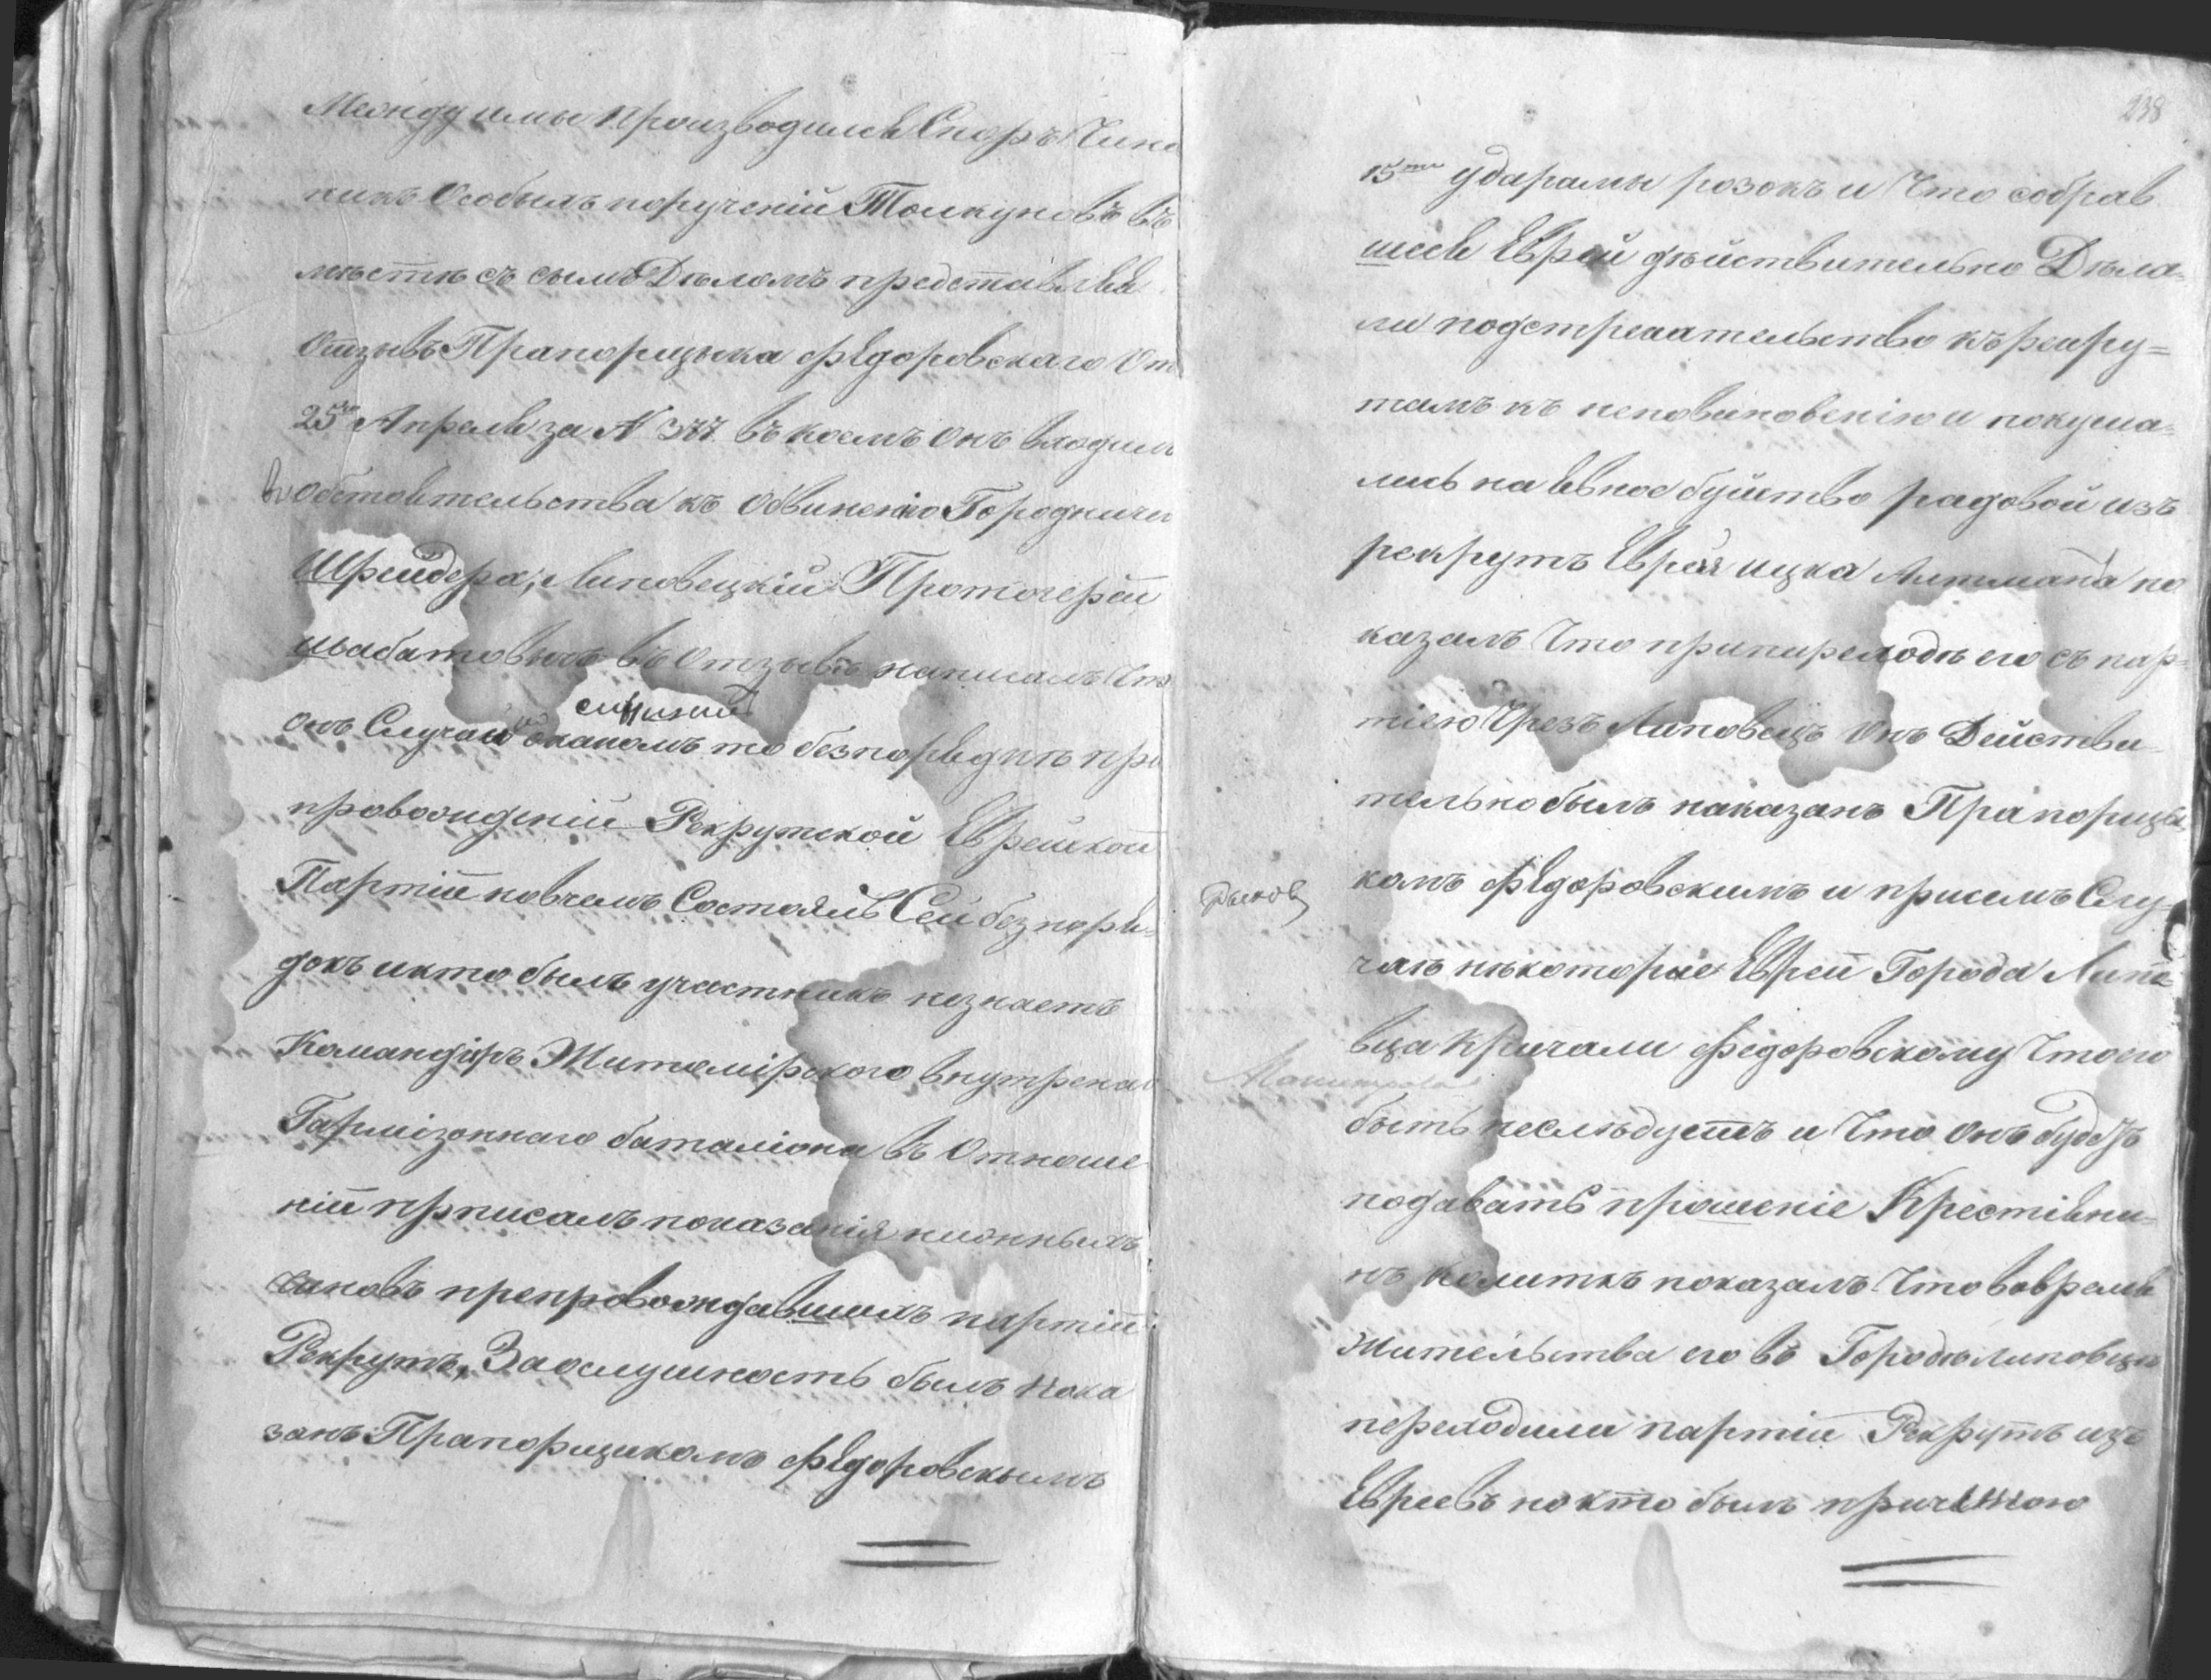 Между имы производился Споръ Чино
никъ Особыхъ порученій Толкуновъ въ
мѣстѣ съ сымъ Дѣломъ представляя
Отзывъ Прапорщыка Федоровскаго От
25го Апреля за N 377. въ коемъ Онъ входилъ
въ обстоятельства къ Обвиненію Городничи
Шрейдера, Липовецкій Протоіерей
Шабатовичъ въ Отзывѣ написалъ Что
Онъ Случайно слышалъ
о какомъ то безпорядкѣ при
провожденій Рекрутской Еврейской
Партіи но вчемъ Состоялъ Сей безпоря-
докъ и кто былъ участникъ незнаетъ
Командиръ Житомірского внутренаго
Гарнизоннаго баталіона въ Отноше
ній прписалъ показанія нижныхъ
чиновъ препровождавшихъ партій
Рекрутъ, Заослушность былъ нока
занъ Прапорщикомъ Федоровскымъ
238
15ти ударамы розокъ и Что собрав
шіся Еврей дѣйствительно Дѣла-
ли подстрекательство къ рекру-
тамъ къ неповиновенію и покуша-
лись на явное буйство радовой изъ
рекрутъ Еврей ицка Литмана по
казалъ Что припиреходѣ его съ пар-
тіею Чрезъ Липовецъ Онъ Действи
тельно былъ наказанъ Прапорщы
комъ Федоровскимъ и присемъ Слу-
чаѣ нѣкоторые Еврей Города Липо-
вца Кричали Федоровскому Что его
быть неслѣдуетъ и Что Онъ будетъ
подавать прошеніе Крестіяни-
нъ показалъ Что вовремя
Жительства его въ Городѣ липовцы
переходили партій Рекрутъ изъ
Евреевъ но кто былъ причиною